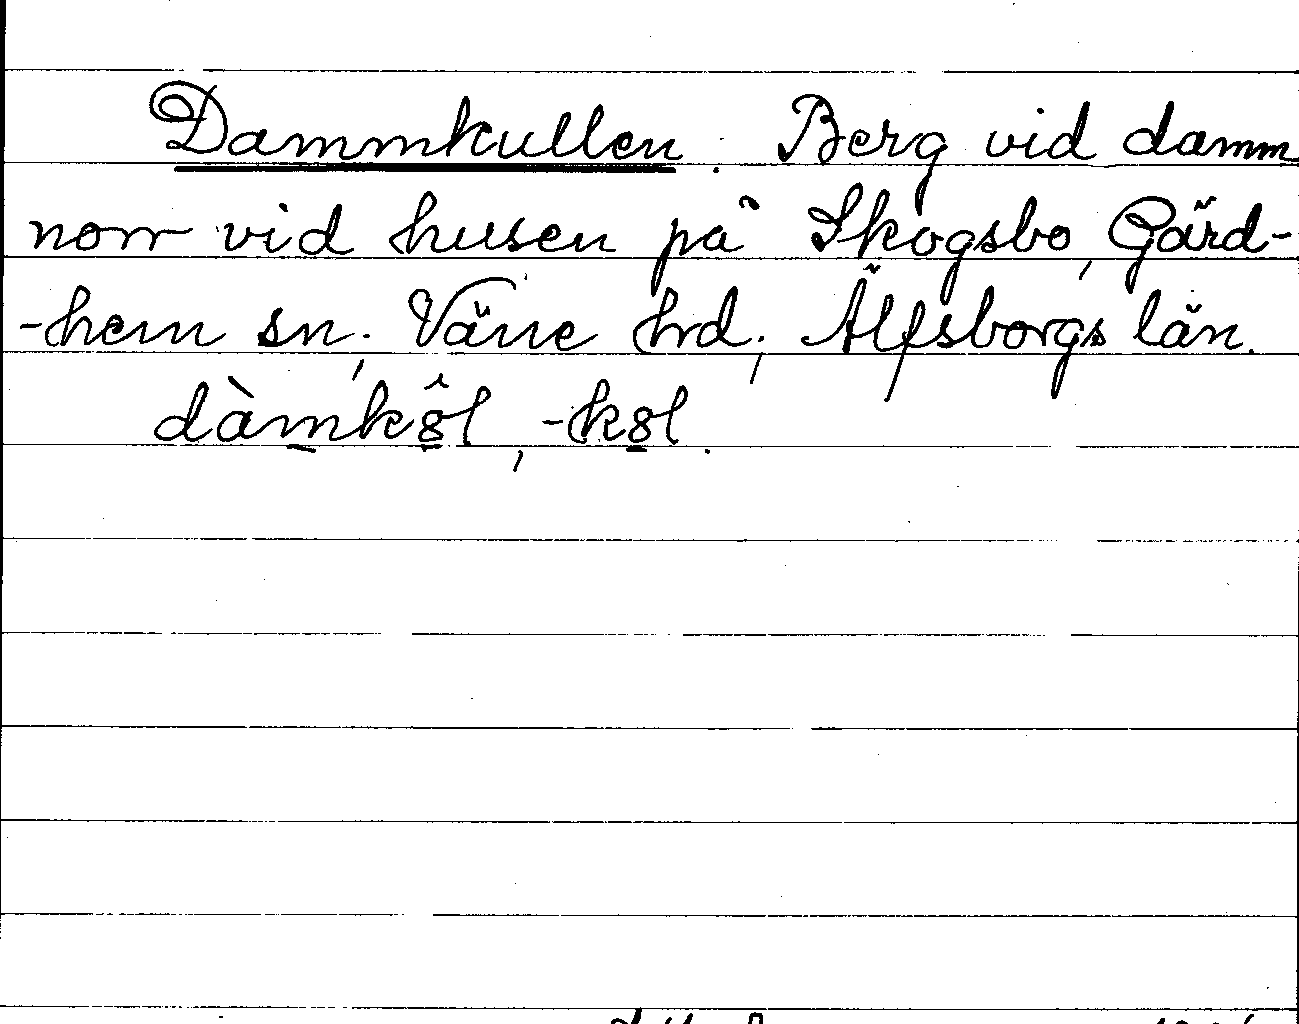 Dammkullen. Berg vid damm
norr vid husen på Skogsbo, Gärd-
-hem sn; Väne hrd; Älfsborgs län.
dàmkôl, -kol.